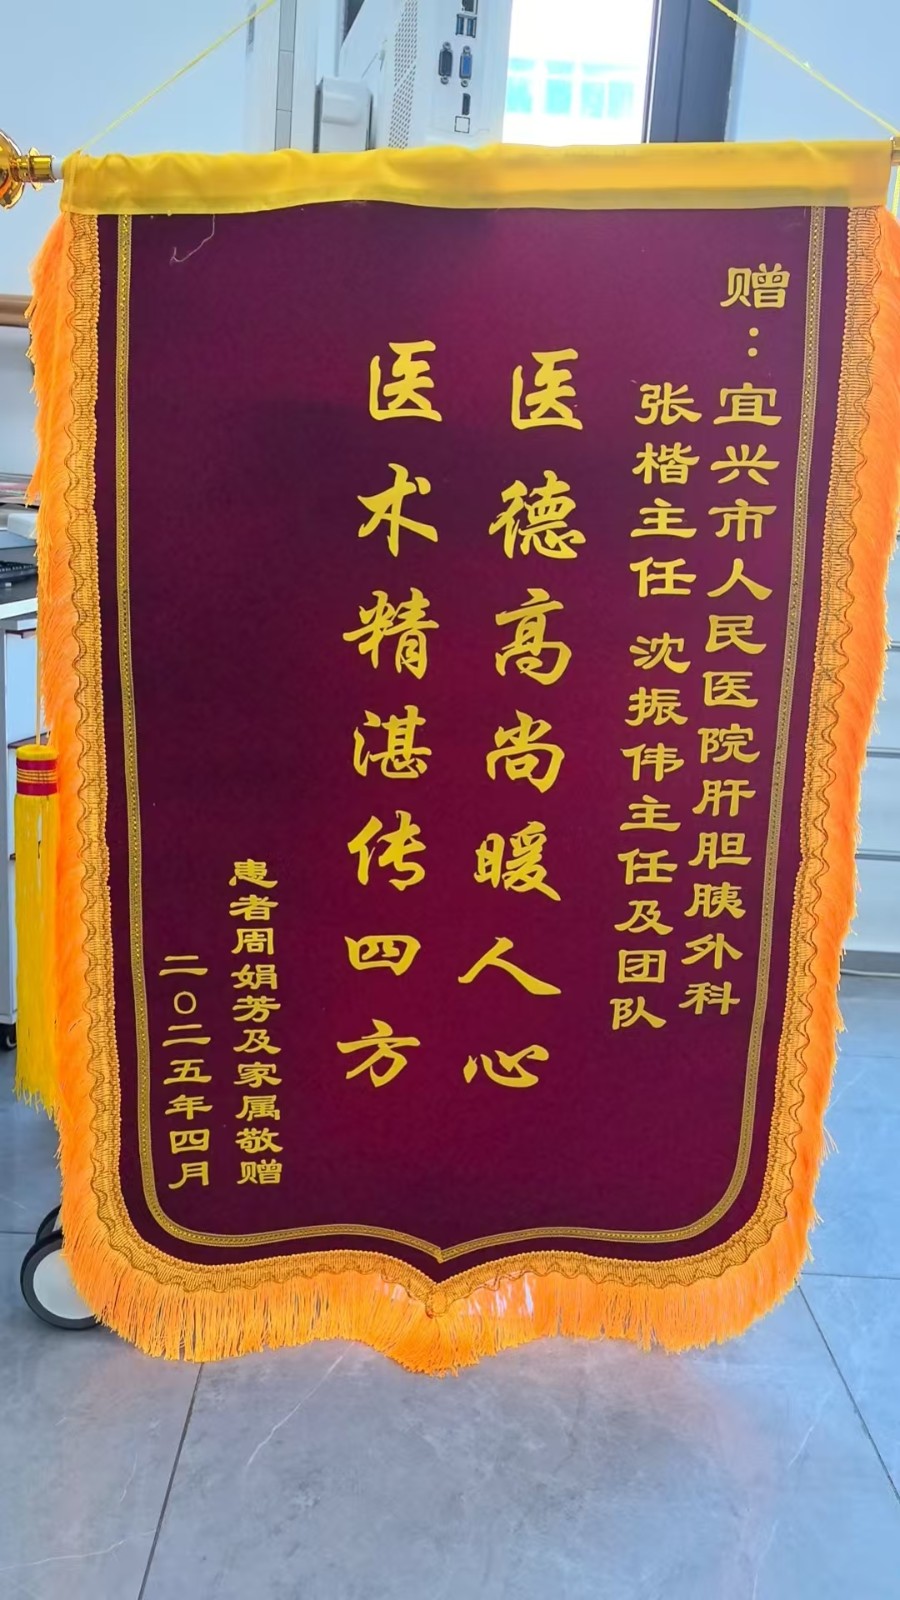 赠：宜兴市人民医院肝胆胰外科
张楷主任 沈振伟主任及团队
医德高尚暖人心
医术精湛传四方
患者周娟芳及家属敬赠
二〇二五年四月